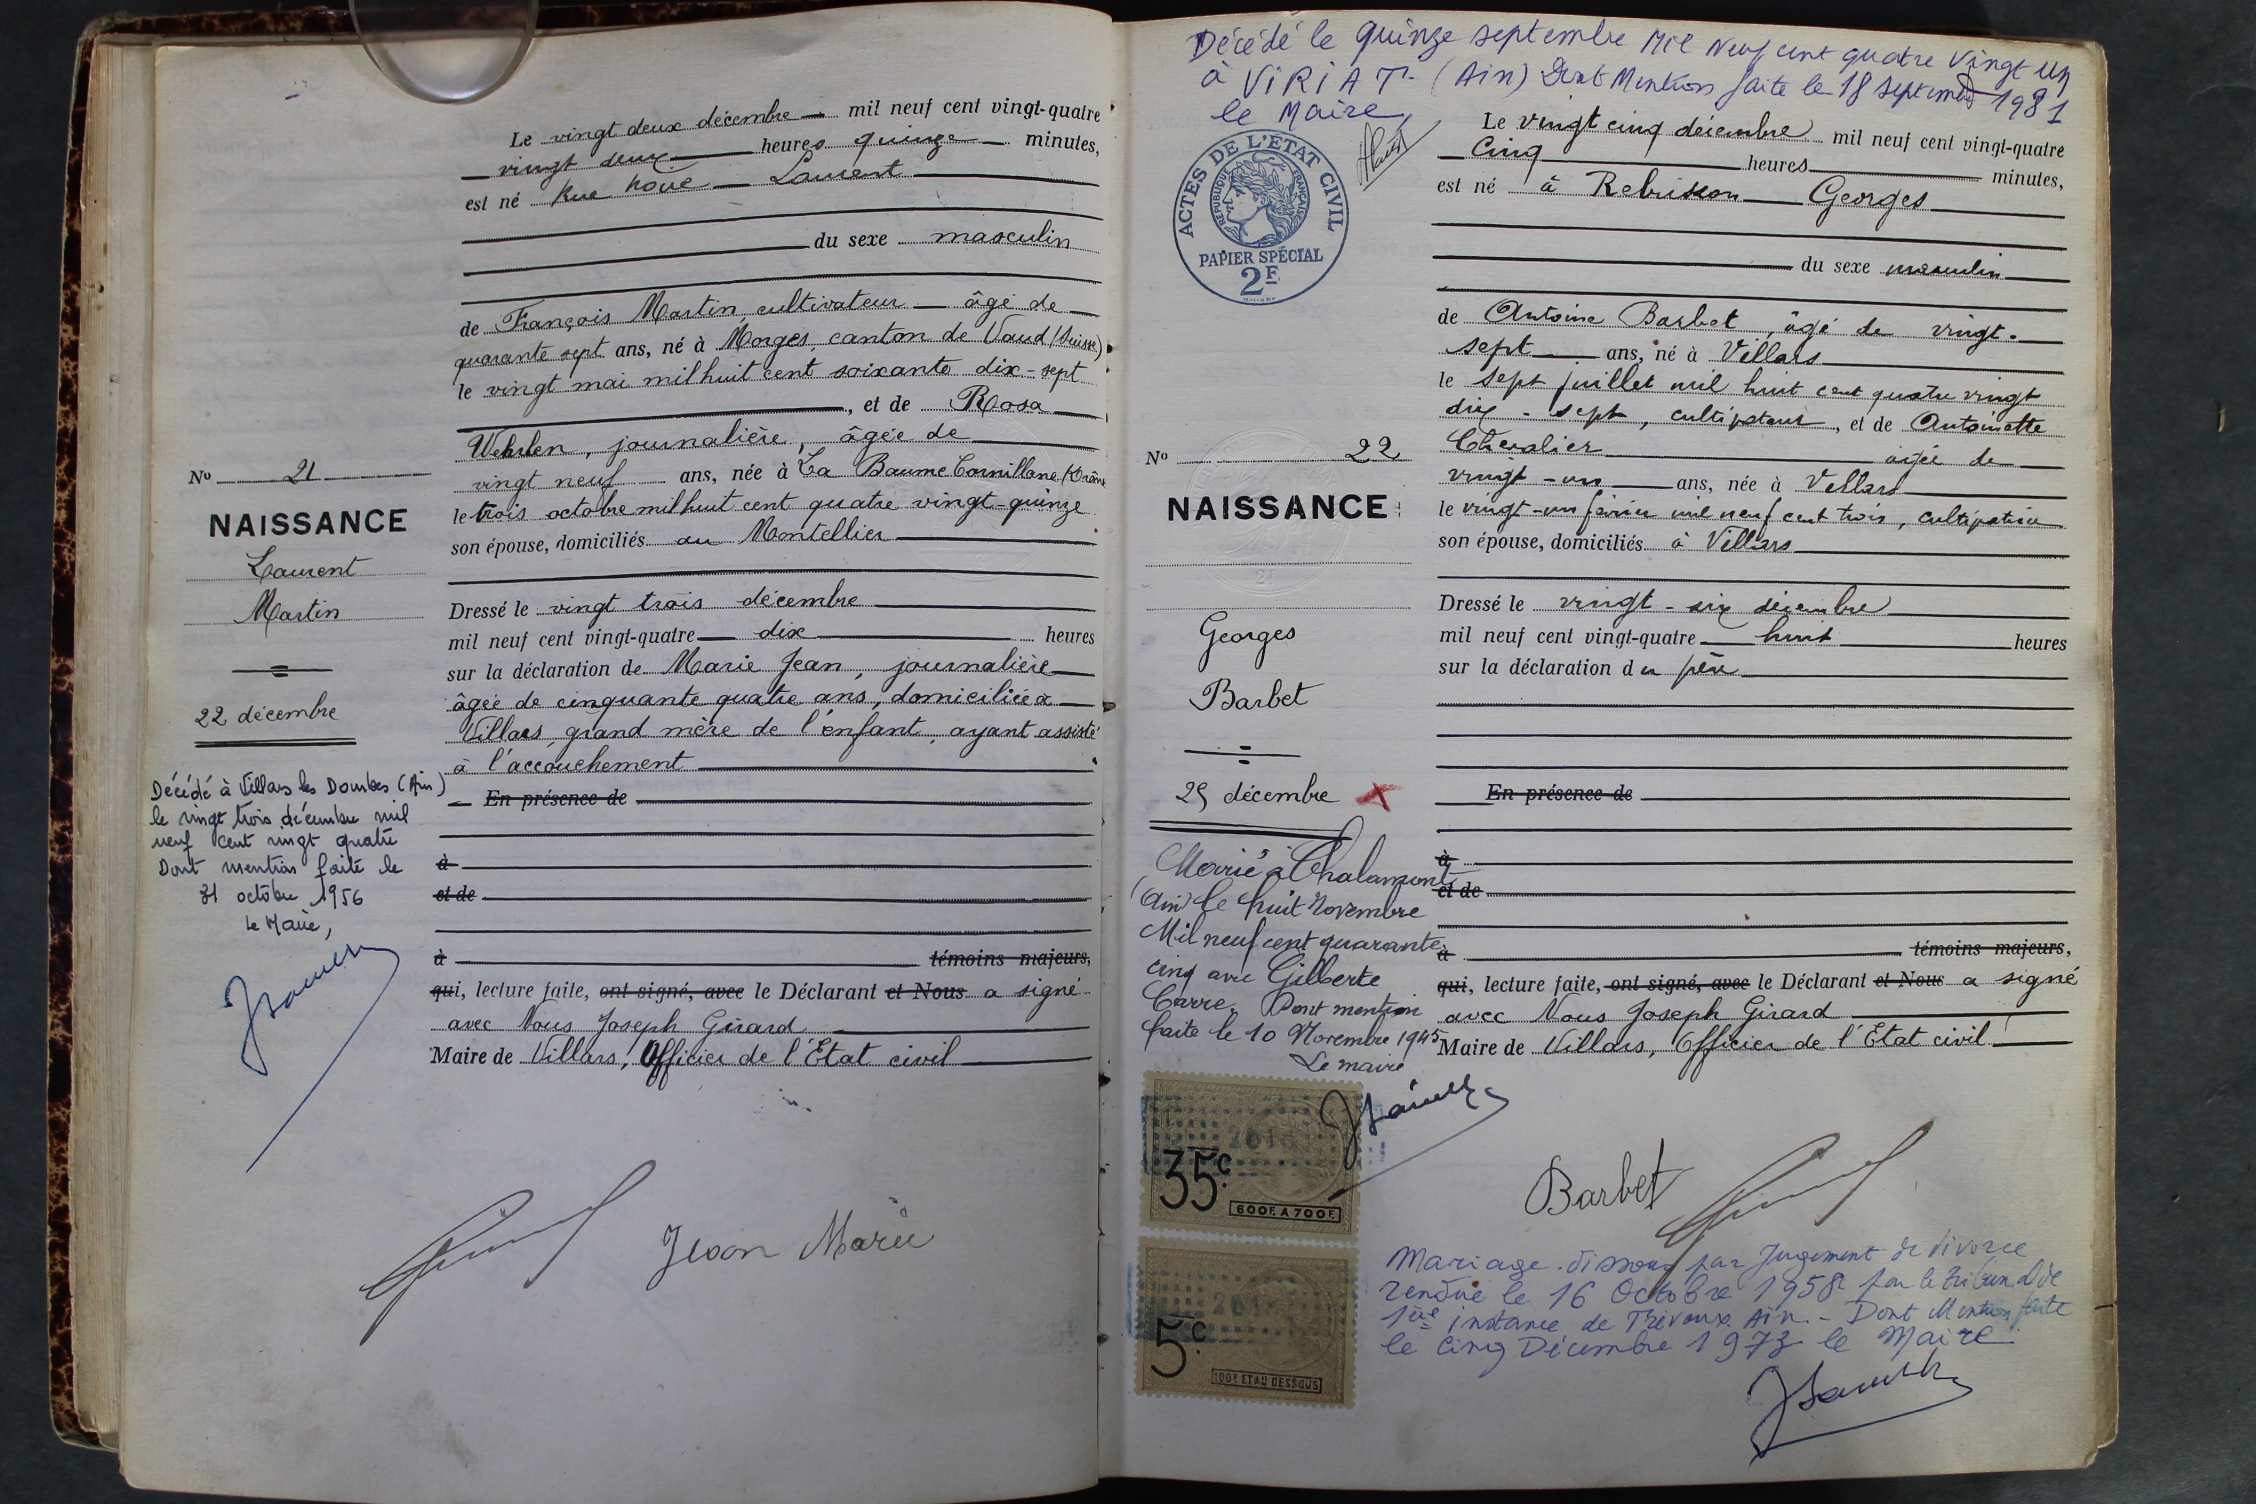 Le vingt deux décembre mil neuf cent vingt-quatre
vingt deux heures quinze minutes,
est né Rue Laurent
du sexe masculin
de François Martin, cultivateur âgé de
quarante sept ans, né à Morges, canton de Vaud (Suisse)
le vingt mai mil huit cent soixante dix-sept
, et de Rosa
journalière, âgée de
vingt neuf ans, née à La Baume Cornillane (Drôme
le trois octobre mil huit cent quatre vingt-quinze
son épouse, domiciliés au Montellier
Dressé le vingt trois décembre
mil neuf cent vingt-quatre dix heures
sur la déclaration de Marie Jean, journalière
âgée de cinquante quatre ans, domiciliée à
Villars, grand mère de l'enfant, ayant assisté
à l'accouchement
En présence de
à
et de
à témoins majeurs,
qui, lecture faite, ont signé, avec le Déclarant et Nous a signé
avec Nous Joseph Girard
Maire de Villars, Officier de l'Etat civil
Jean Marie
No 21
NAISSANCE
Laurent
Martin
22 décembre
Décédé à Villars les Dombes (Ain)
le vingt trois décembre mil
neuf cent vingt quatre
Dont mention faite le
31 octobre 1956
Le Maire,
Décédé le quinze septembre Mil Neuf cent quatre Vingt un
à VIRIAT (Ain) Dont Mention faite le 18 septembre 1981
le Maire
ACTES DE L'ÉTAT CIVIL
RÉPUBLIQUE FRANÇAISE
PAPIER SPÉCIAL
2F
Le vingt cinq décembre mil neuf cent vingt-quatre
Cinq heures minutes,
est né à Georges
du sexe masculin
de Antoine Barbet, âgé de vingt-
sept ans, né à Villars
le sept juillet mil huit cent quatre vingt
dix-sept, cultivateur, et de Antoinette
Chevalier âgée de
vingt-un ans, née à Villars
le vingt-un février mil neuf cent trois, cultivatrice
son épouse, domiciliés à Villars
Dressé le vingt-six décembre
mil neuf cent vingt-quatre huit heures
sur la déclaration du père
En présence de
à
et de
à témoins majeurs,
qui, lecture faite, ont signé, avec le Déclarant et Nous a signé
avec Nous Joseph Girard
Maire de Villars, Officier de l'Etat civil
Barbet
No 22
NAISSANCE
Georges
Barbet
25 décembre
Marié à Chalamont
(Ain) le huit Novembre
Mil neuf cent quarante
cinq avec Gilberte
Carre. Dont mention
faite le 10 Novembre 1945
Le maire
35c
600F. A 700F.
5c
100F ET AU DESSOUS
Mariage dissous par Jugement de divorce
rendue le 16 Octobre 1958 par le tribunal de
1ère instance de Trévoux Ain - Dont Mention faite
le Cinq Décembre 1973 le Maire